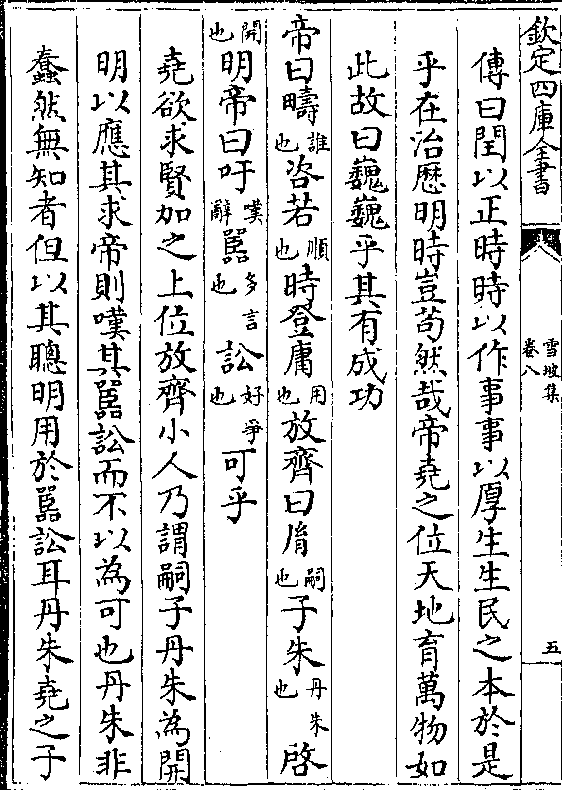 欽定四庫全書
雪坡集
卷八
五
傳曰閏以正時時以作事事以厚生生民之本於是
乎在治厯明時豈苟然哉帝堯之位天地育萬物如
此故曰巍巍乎其有成功
帝曰疇誰也咨若順也時登庸用也放齊曰胤嗣也子朱丹朱也啓
開也明帝曰吁嘆辭嚚多言也訟好爭也可乎
堯欲求賢加之上位放齊小人乃謂嗣子丹朱為開
明以應其求帝則嘆其嚚訟而不以為可也丹朱非
蠢然無知者但以其聰明用於嚚訟耳丹朱堯之子